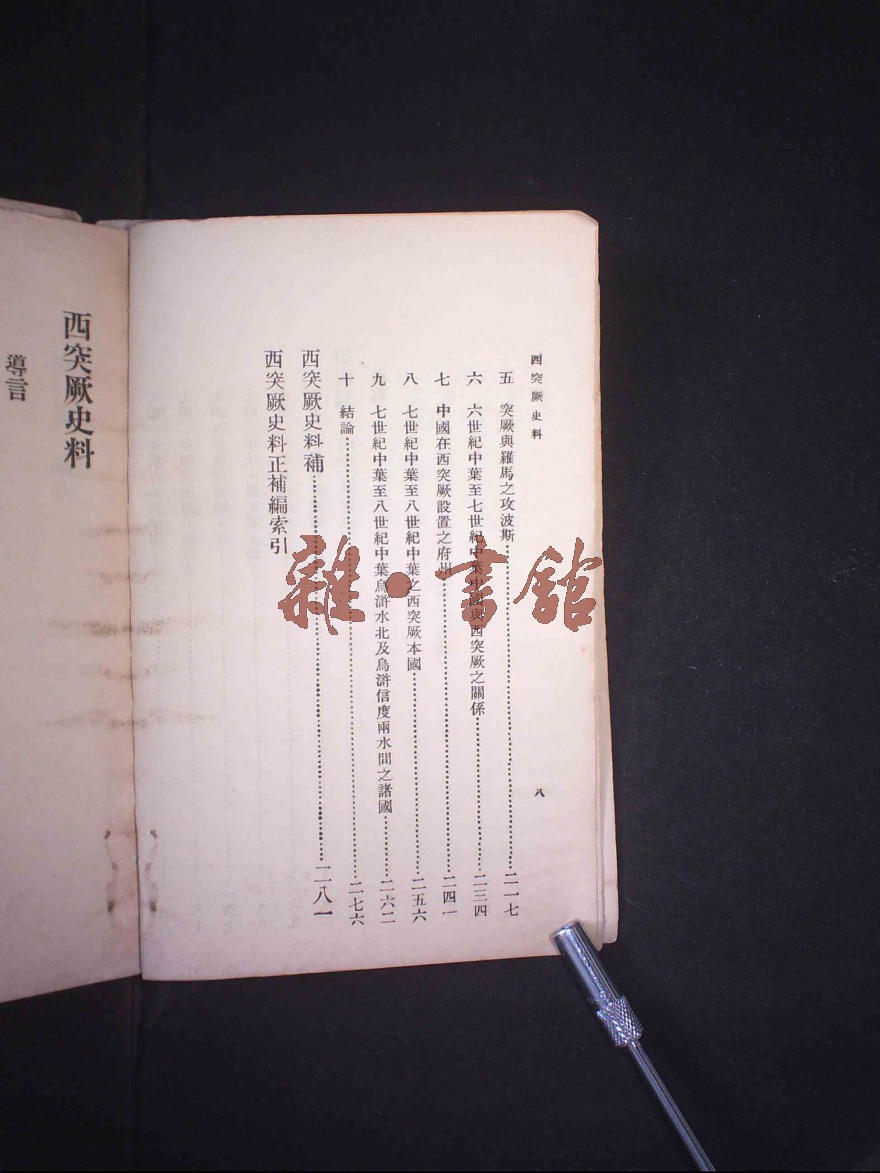 西突厥史料
五 突厥與羅馬之攻波斯……二一七
六 六世紀中葉至七世紀中葉中國與西突厥之關係……二三四
七 中國在西突厥設置之府州……二四一
八 七世紀中葉至八世紀中葉之西突厥本國……二五六
九 七世紀中葉至八世紀中葉烏滸水北及烏滸信度兩水間之諸國……二六二
十 結論……二七六
西突厥史料補……二八一
西突厥史料正補編索引
八
西突厥史料
導言
雜·書館